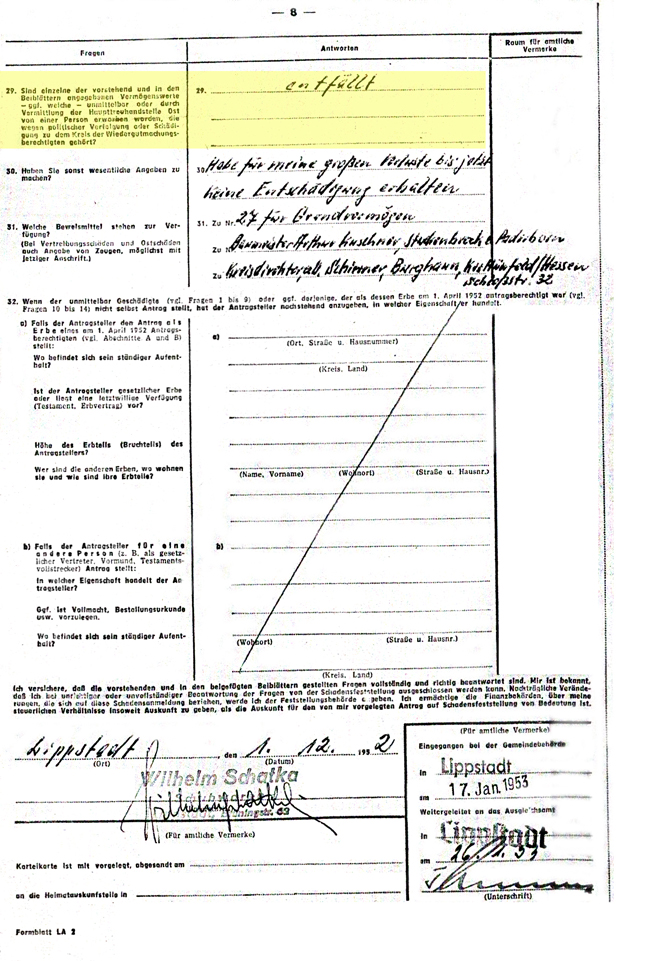 — 8 —
Fragen
Antworten
Raum für amtliche
Vermerke
29. Sind einzelne der vorstehend und in den
Beiblättern angegebenen Vermögenswerte
— ggf. welche — unmittelbar oder durch
Vermittlung der Haupttreuhandstelle Ost
von einer Person erworben worden, die
wegen politischer Verfolgung oder Schädi-
gung zu dem Kreis der Wiedergutmachungs-
berechtigten gehört?
29. entfällt
30. Haben Sie sonst wesentliche Angaben zu
machen?
30. Habe für meine großen Verluste bis jetzt
keine Entschädigung erhalten
31. Welche Beweismittel stehen zur Ver-
fügung?
(Bei Vertreibungsschäden und Ostschäden
auch Angabe von Zeugen, möglichst mit
jetziger Anschrift.)
31. Zu Nr. 27 für Grundvermögen
Zu Arthur b. Paderborn
Zu Burghaun, Hünfeld/Hessen
Schloßstr. 32
32. Wenn der unmittelbar Geschädigte (vgl. Fragen 1 bis 9) oder ggf. derjenige, der als dessen Erbe am 1. April 1952 antragsberechtigt war (vgl.
Fragen 10 bis 14) nicht selbst Antrag stellt, hat der Antragsteller nachstehend anzugeben, in welcher Eigenschaft er handelt.
a) Falls der Antragsteller den Antrag als
Erbe eines am 1. April 1952 Antrags-
berechtigten (vgl. Abschnitte A und B)
stellt:
Wo befindet sich sein ständiger Aufent-
halt?
a)
(Ort, Straße u. Hausnummer)
(Kreis, Land)
Ist der Antragsteller gesetzlicher Erbe
oder liegt eine letztwillige Verfügung
(Testament, Erbvertrag) vor?
Höhe des Erbteils (Bruchteils) des
Antragstellers?
Wer sind die anderen Erben, wo wohnen
sie und wie sind ihre Erbteile?
(Name, Vorname) (Wohnort) (Straße u. Hausnr.)
b) Falls der Antragsteller für eine
andere Person (z. B. als gesetz-
licher Vertreter, Vormund, Testaments-
vollstrecker) Antrag stellt:
b)
In welcher Eigenschaft handelt der An-
tragsteller?
Ggf. ist Vollmacht, Bestellungsurkunde
usw. vorzulegen.
Wo befindet sich sein ständiger Aufent-
halt?
(Wohnort) (Straße u. Hausnr.)
(Kreis, Land)
Ich versichere, daß die vorstehenden und in den beigefügten Beiblättern gestellten Fragen vollständig und richtig beantwortet sind. Mir ist bekannt,
daß ich bei unrichtiger oder unvollständiger Beantwortung der Fragen von der Schadensfeststellung ausgeschlossen werden kann. Nachträgliche Verände-
rungen, die sich auf diese Schadensanmeldung beziehen, werde ich der Feststellungsbehörde anzeigen. Ich ermächtige die Finanzbehörden, über meine
steuerlichen Verhältnisse insoweit Auskunft zu geben, als die Auskunft für den von mir vorgelegten Antrag auf Schadensfeststellung von Bedeutung ist.
Lippstadt, den 1. 12. 1952
(Ort) (Datum)
Wilhelm Schatka
(Für amtliche Vermerke)
Karteikarte ist mit vorgelegt, abgesandt am
an die Heimatauskunftstelle in
(Für amtliche Vermerke)
Eingegangen bei der Gemeindebehörde
in Lippstadt
am 17. Jan. 1953
Weitergeleitet an das Ausgleichsamt
in Lippstadt
am
(Unterschrift)
Formblatt LA 2